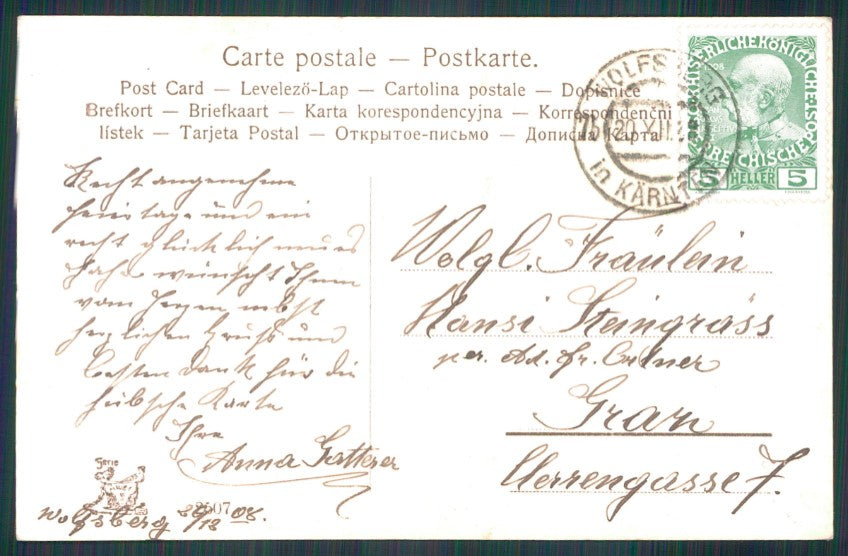 Carte postale — Postkarte.
Post Card — Levelező-Lap — Cartolina postale — Dopisnice
Brefkort — Briefkaart — Karta korespondencyjna — Korrespondenční
lístek — Tarjeta Postal — Открытое-письмо — Дописна Карта
WOLFSBERG
20 XII
in KÄRNTEN
KAISERLICHEKÖNIGLICHE ÖSTERREICHISCHE
1908
5 HELLER 5
Recht angenehme
Feiertage und ein
recht glücklich neues
Jahr wünscht Ihnen
vom Herzen nebst
herzlichen Gruß und
besten Dank für die
hübsche Karte
Ihre
Anna Gatterer
Wolgl. Fräulein
Hansi Steingräss
per. Ad. Fr.
Graz
Herrengasse 7.
Serie
2607
Wolfsberg /12 08.